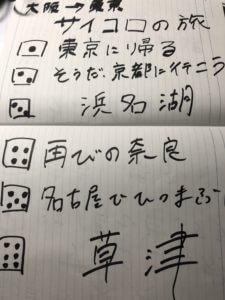 大阪→東京
サイコロの旅
東京に帰る
そうだ、京都に行こう
浜名湖
再びの奈良
名古屋でひつまぶし
草津